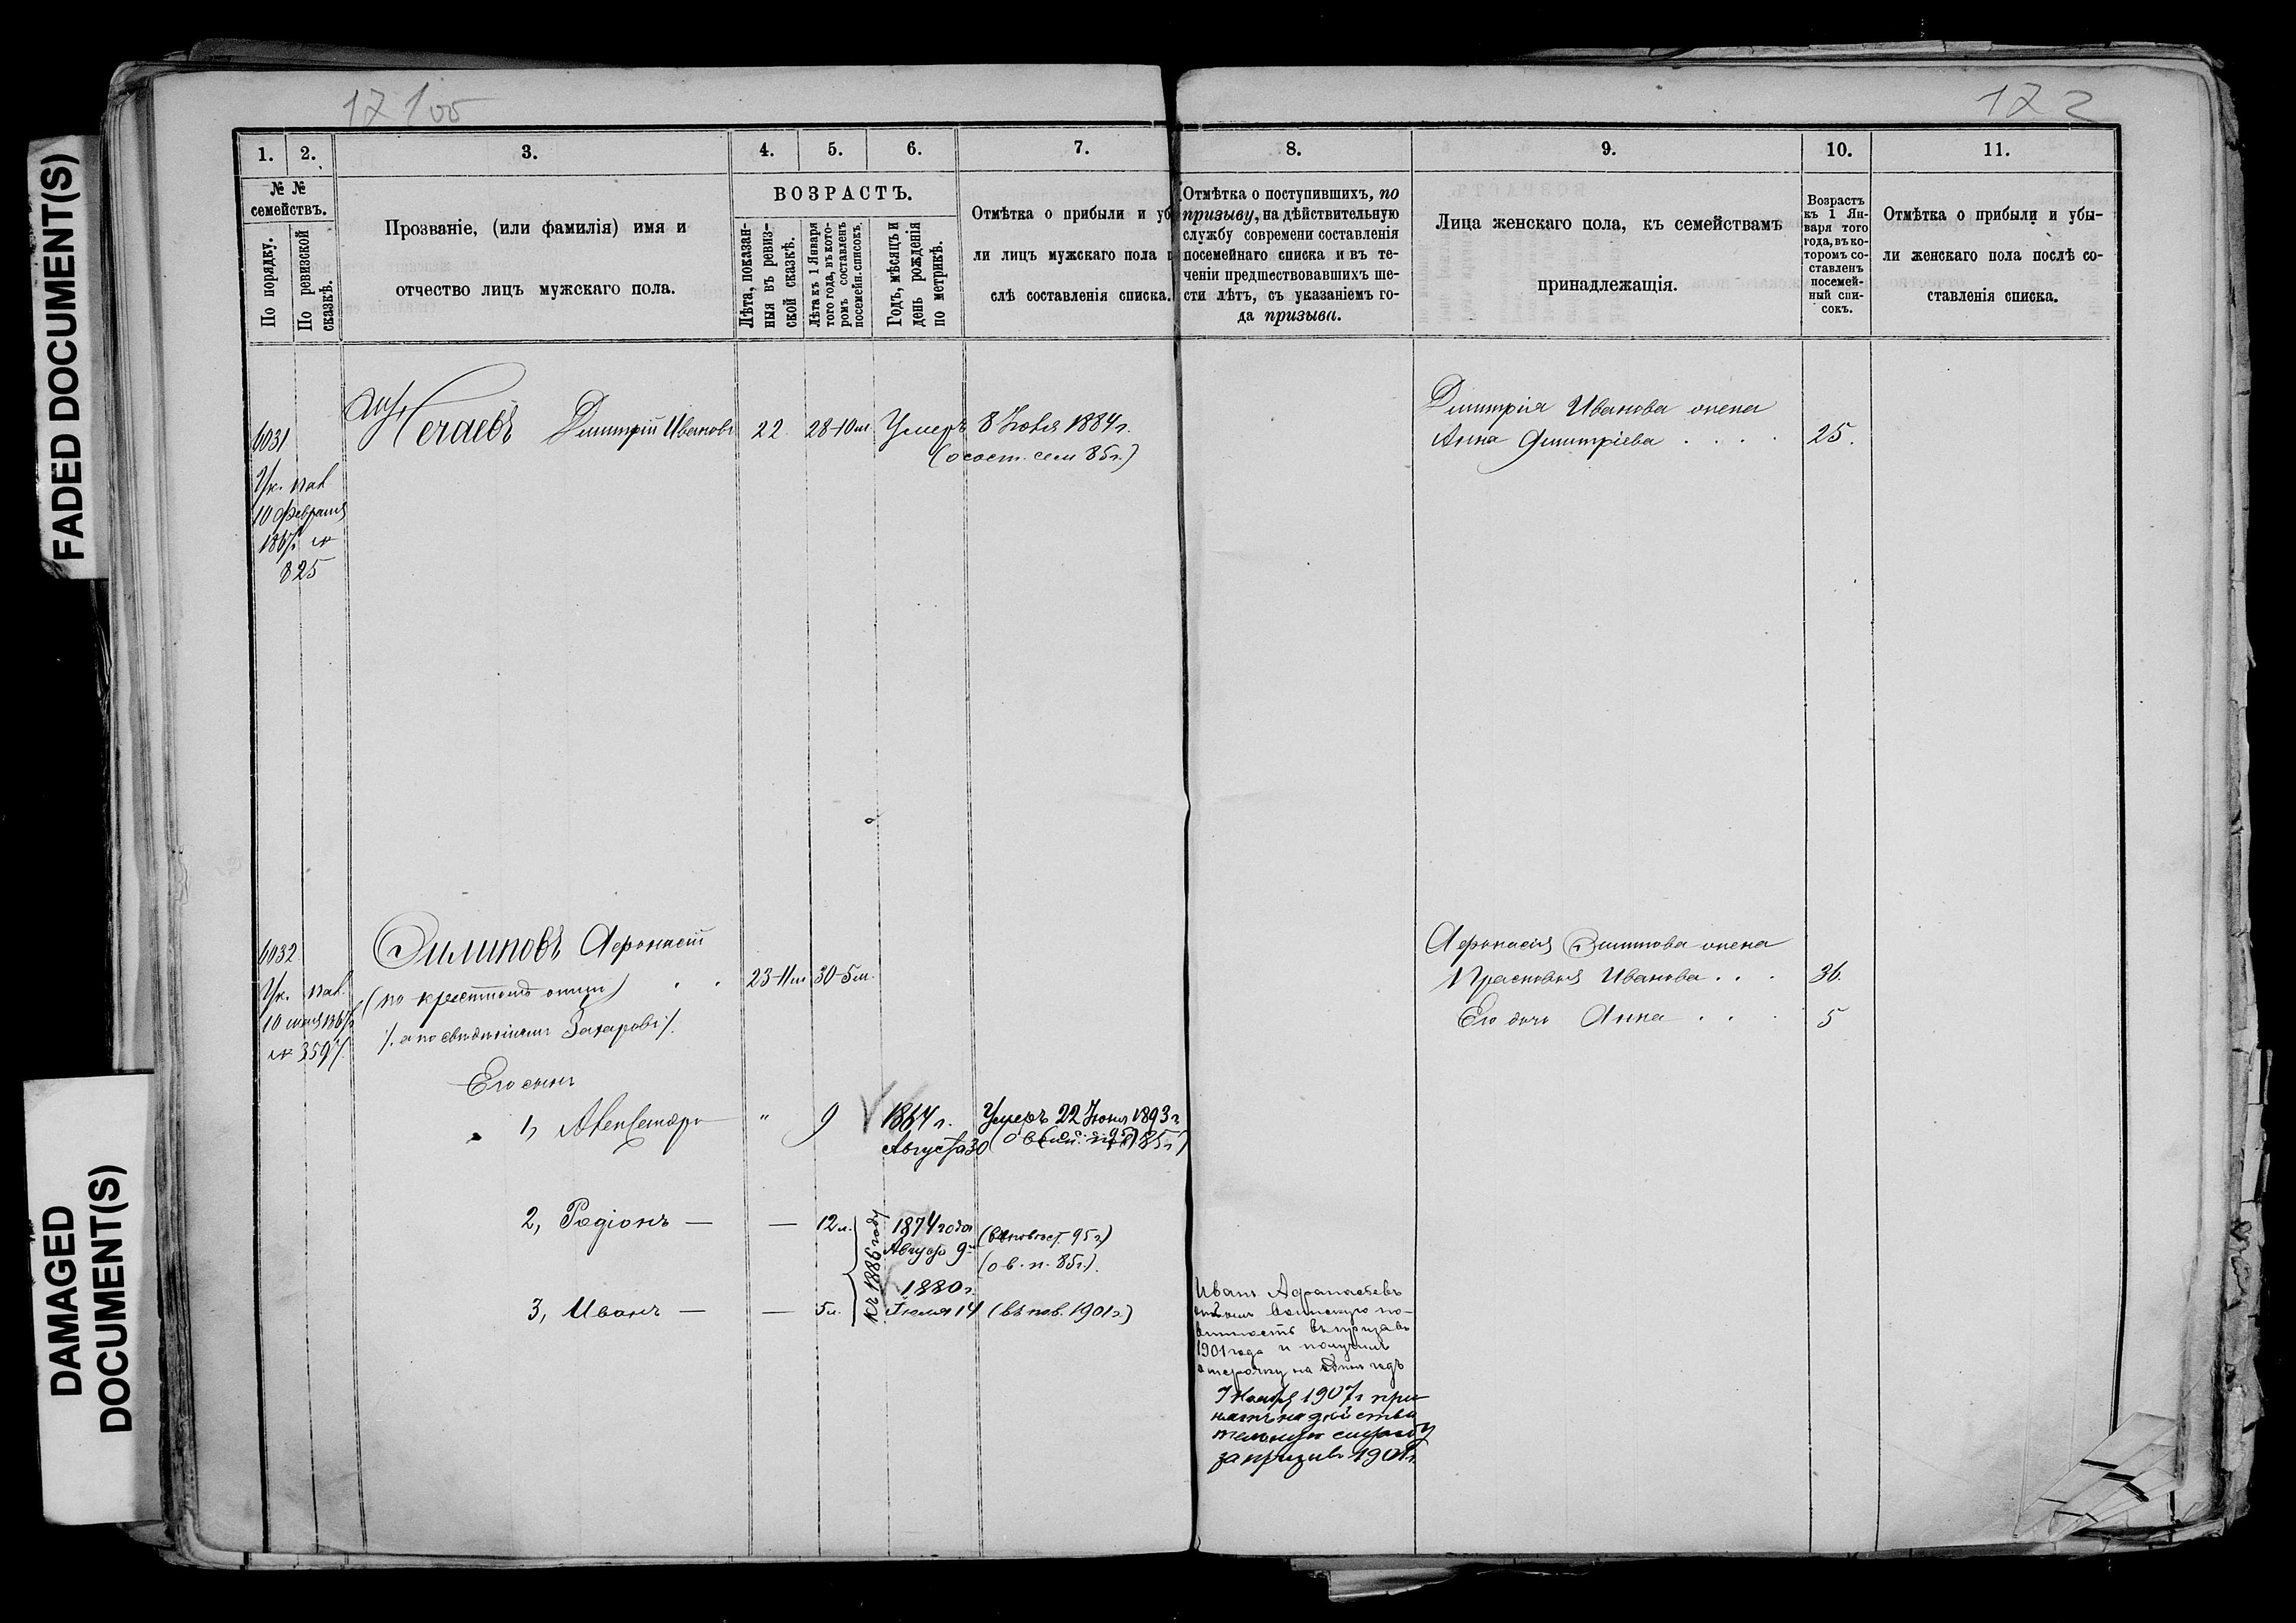 FADED DOCUMENT(S)
DAMAGED
DOCUMENT(S)
171об
172
1.
2.
3.
4.
5.
6.
7.
8.
9.
10.
11.
№ №
семействъ.
По порядку.
По ревизской
сказкѣ.
Прозваніе, (или фамилія) имя и
отчество лицъ мужскаго пола.
ВОЗРАСТЪ.
Лѣта, показан-
ныя въ ревиз-
ской сказкѣ.
Лѣта къ 1 Января
того года, въ кото-
ромъ составленъ
посемейн. списокъ.
Годъ, мѣсяцъ и
день рожденія
по метрикѣ.
Отмѣтка о прибыли и уб
ли лицъ мужскаго пола п
слѣ составленія списка.
Отмѣтка о поступившихъ, по
призыву, на дѣйствительную
службу современи составленія
посемейнаго списка и въ те-
ченіи предшествовавшихъ ше-
сти лѣтъ, съ указаніемъ го-
да призыва.
Лица женскаго пола, къ семействамъ
принадлежащія.
Возрастъ
къ 1 Ян-
варя того
года, въ ко-
торомъ со-
ставленъ
посемей-
ный спи-
сокъ.
Отмѣтка о прибыли и убы-
ли женскаго пола послѣ со-
ставленія списка.
6031
Ук. пал.
10 февраля
1867 №
825
Нечаевъ Димитрій Ивановъ
22
28-10м
Умеръ 8 Іюля 1884 г.
(о сост. сем 85 г.)
Димитрія Иванова жена
Анна Дмитріева . . . .
25.
6032
Ук. пал.
№ 3597
Филиповъ Афонасій
(по крестному отцу) . .
/. а по свѣдѣніямъ Захаровъ /.
23-11м
30-5м.
Афонасія Филипова жена
Прасковья Иванова . . .
36.
Его дочь Анна . . .
5
Его сынъ
1, Александръ
"
9
1864 г.
Августа 30
Умеръ 22 Іюня 1893 г
2, Родіонъ —
—
12 л.
къ 1886 году
1874 года
Августа 9го
95 г.)
(о в. п. 85 г.).
3, Иванъ —
—
5 л.
1880 г.
Іюля 14
(въ пов. 1901 г.)
Иванъ Афанасьевъ
воинскую по-
винность въ призывъ
1901 года и получилъ
отсрочку на одинъ годъ
7 Ноября 1907 г при
нятъ на дѣйстви
тельную службу
за призывъ 190